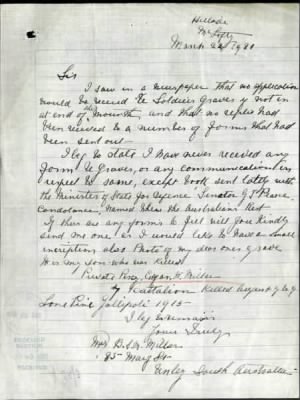 Hillside
Mc
March 22/1921
Sir
I saw in a newspaper that no application
would be received re Soldiers Graves if not in
at end of the month, and that no replies had
been received to a number of forms that had
been sent out
I beg to state I have never received any
Form re Graves, or any communication in
respect to same, except book sent lately with
the Ministers of State for Defence Senator G. F. Pearce
Condolence, named Where the Australians Rest
If there are any forms to fill will you kindly
send me one as I would like to have a small
inscription also Photo of my dear ones grave
He is my son who was Killed
Private Percy Miller
Battalion Killed August
Lone Pine Gallipoli 1915
I beg to remain
Yours Truly
Mrs B. Miller
85 Mary St
Unley South Australia